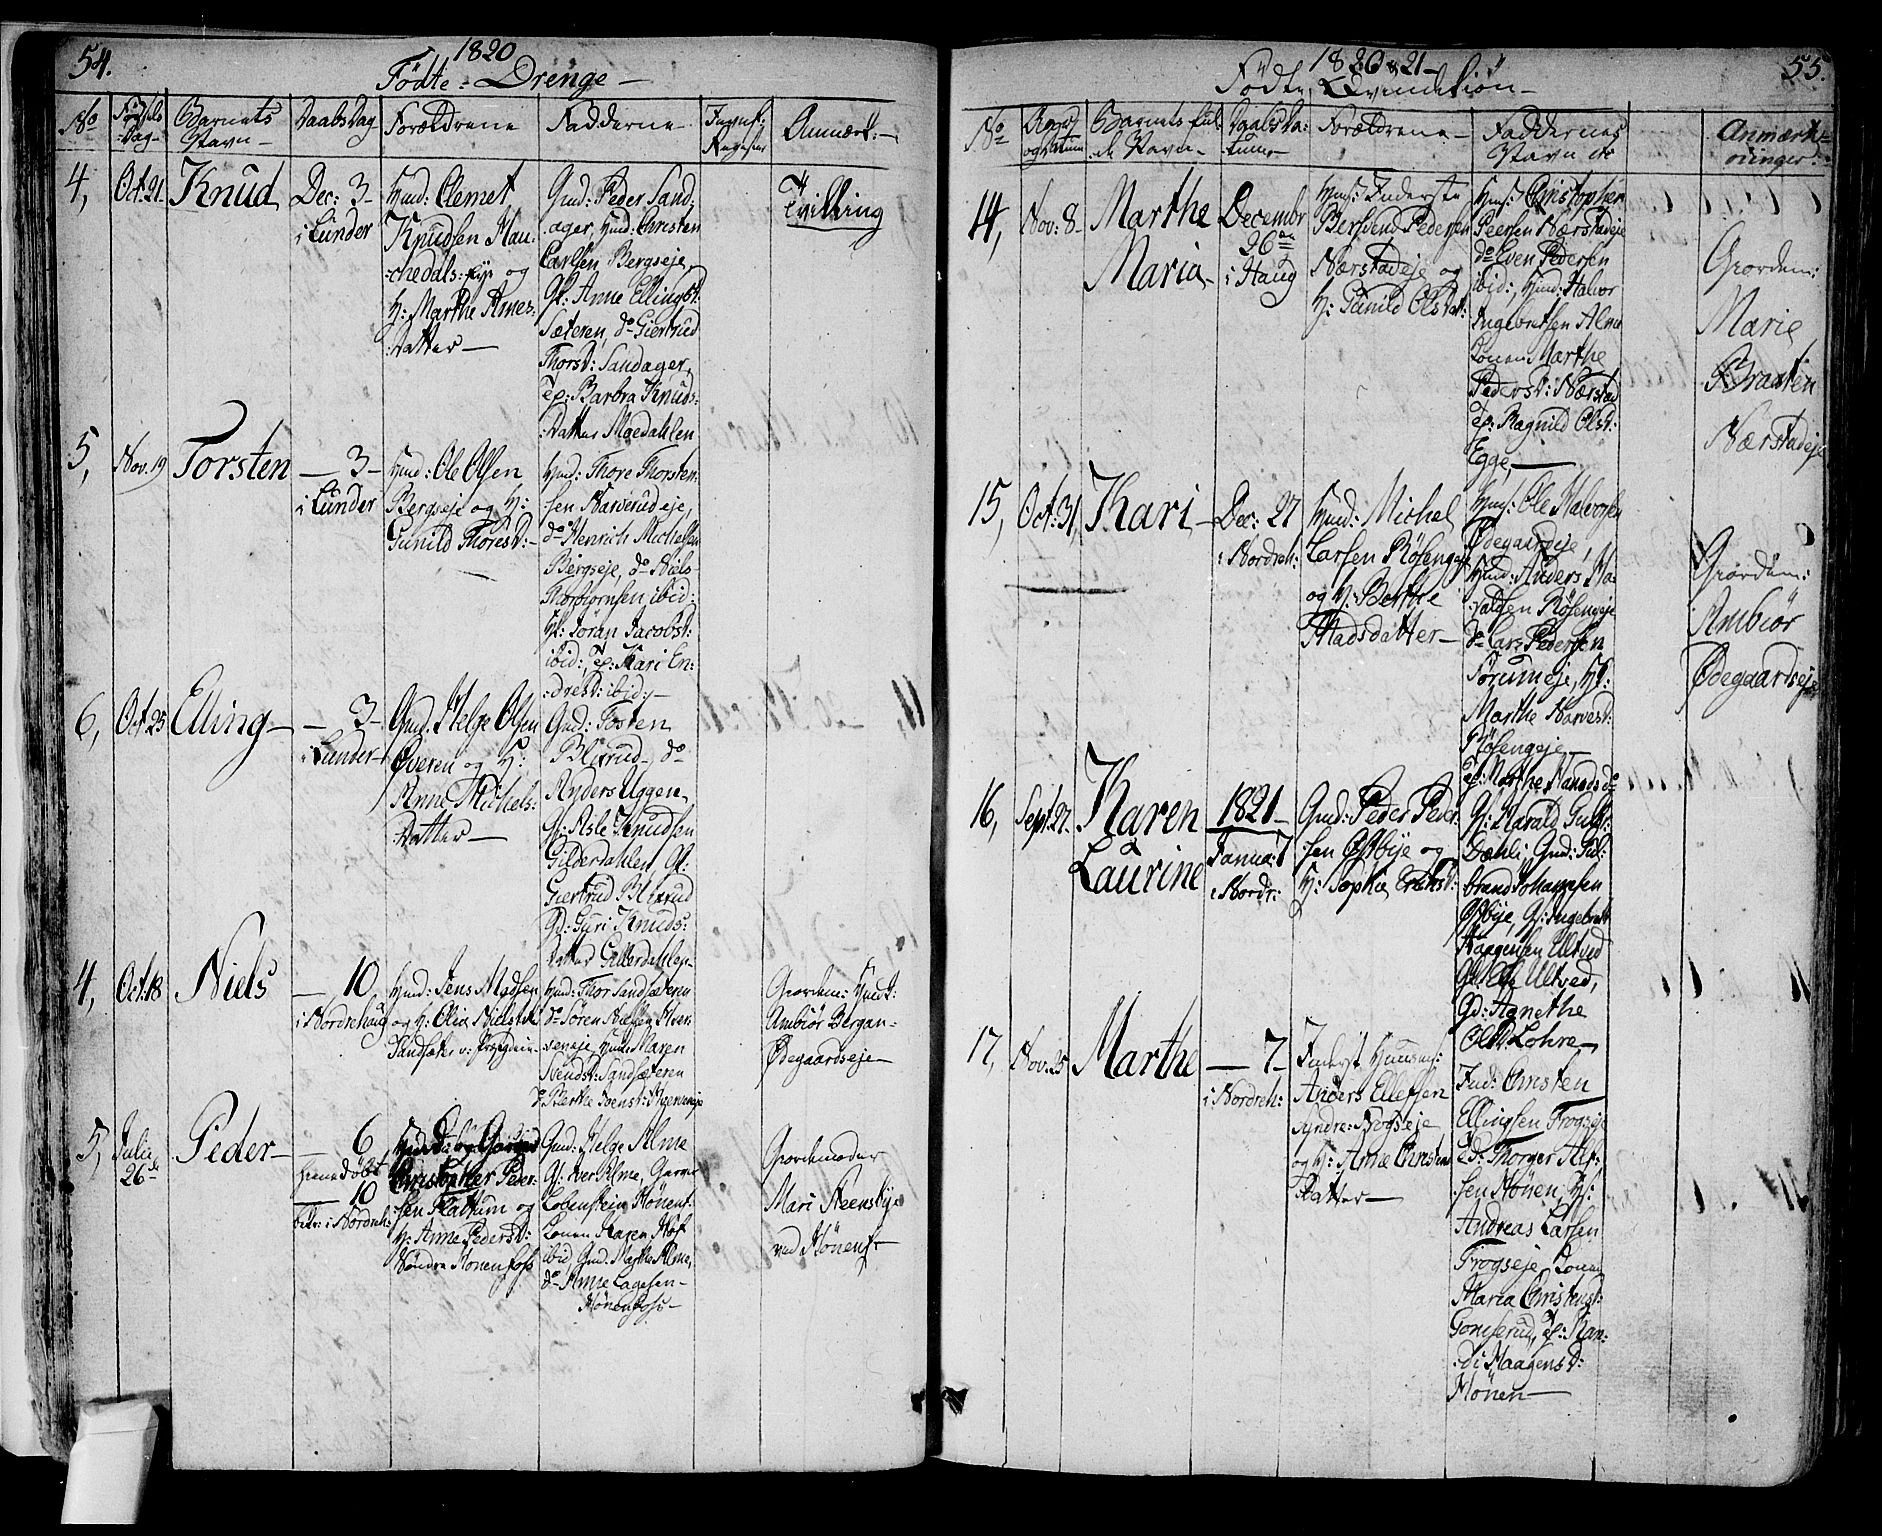 54.
1820
Fødte = Drenge —
No
Fødsels
Dag
Barnets
Navn —
Daabs Dag
Forældrene
Fadderne
Anmærk: —
4,
Oct. 21
Knud
Dec: 3
i Lunder
Huusd: Clemet
Knudsen
og
H: Marthe Arnes:
:datter —
Gmd: Peder Sand,
:ager, Huusd: Christen
Larsen Bergseje,
Gk: Anne Ellingsd:
Sæteren, do Giertrud
Thorsd: Sandager,
Tep: Barbra Knuds:
:datter Moedahlen
Tvilling
5,
Nov. 19
Torsten
— 3 —
i Lunder
Huusd: Ole Olsen
Bergseje og H:
Gunild Thoresd: —
Huusd: Thore Thorsten:
:sen Narverud eje,
do Henrich Michelsen
Bergseje, do Niels
Thorbiørnsen ibid:
Hk: Joran Jacobsd:
ibid:, Tep: Kari En:
:drest: ibid: —
6,
Oct. 25
Elling —
— 3 —
i Lunder
Gmd. Helge Olsen
Øveren og H:
Anne Michels:
:datter —
Gmd: Tosten
Blixrud, do
Anders Uggen,
Gk: Asle Knudsen
Gilderdahlen, Gk:
Giertrud Blixrud
Gd: Guri Knuds:
datter Gillerdahlen
4,
Oct. 18
Niels
— 10
i Nordrehaug
Huusd: Jens Madsen
og H: Olia Nielsd:
Sandsæter
Huusd: Thor Sandsæteren
do Søren Nielsen
Maren
Svendsd: Sandsæteren
do Berthe
Giordem: Huusd:
Ambiør Bergan —
Ødegaardseje —
5,
Julie
26de
Peder —
— 6
hiemedøbt
— 10
bekr: i Nordreh:
Christopher Peder:
:sen Flattum og
H: Anne Pedersd:
Søndre Hønenfoss
Gmd: Helge Alme
Gk: Iver Alme,
Lobenstein Hønenf:
Konen Karen Hof
ibid, Gmd: Marthe Alme,
do Anne Lagesen —
Hønenfoss —
Giordemoder
Mari Steensbye
ved Hønenf —
55.
1820 & 21 —
Fødte Qvindekiøn —
No
og Datum
Barnets ful-
de Navn —
Daabs Da-
tum —
Forældrene —
Faddernes
Navn
Anmærk-
ninger
14,
Nov: 8
Marthe
Maria —
Decembr
26
i Haug
Huusf: Inderste
Bersvend Pedersen
Nærstadeje og
H: Gunild Olsd:
Huusf: Christopher
Peersen Nærstadeje
do Even Pedersen
ibid:, Huusd: Halvor
Ingebretsen Alme
Konen Marthe
Pedersd: Nærstad
Tep: Ragnild Olsd:
Egge, —
Giordem:
Marie
Braaten
Nærstadeje
15,
Oct: 31
Kari —
Dec: 27
i Nordreh:
Huusd: Michel
Larsen Røsengeje
og H: Berthe
Madsdatter —
Huusf: Ole Halvorsen
Ødegaardeje,
Huusd: Anders Ha:
:raldsen Røsengeje
do Lars Pedersen
Forumeje, Hk:
Marthe Narvesd:
Røsengeje —
Tep: Marthe
Giordem:
Ambiør
Ødegaardseje
16,
Sept. 27
Karen
Laurine
1821
Janua: 7
i Nordr:
Gmd: Peder Peder:
:sen Østbye og
H: Sophia Erichsd:
Gk: Harald Gulbr:
Dæhli, Gmd: Gul:
brand Johannesen
Østbye, Gk: Ingebret
Haagensen Ultved
Ultved,
Gd: Agnethe
Olsd. Lohre —
17,
Nov. 25
Marthe
— 7 —
i Nordreh:
Inderst Huusmf:
Anders Ellefsen
Syndre: Frogseje
og H: Anne Christens
datter —
Ind: Christen
Ellingsen Frogseje
Ed: Thorger Alf:
:sen Hønen, H:
Andreas Larsen
Frogseje, Konen
Maria Christensd:
Gomserud, Tep: Ran:
:di Haagensd:
Hønen —